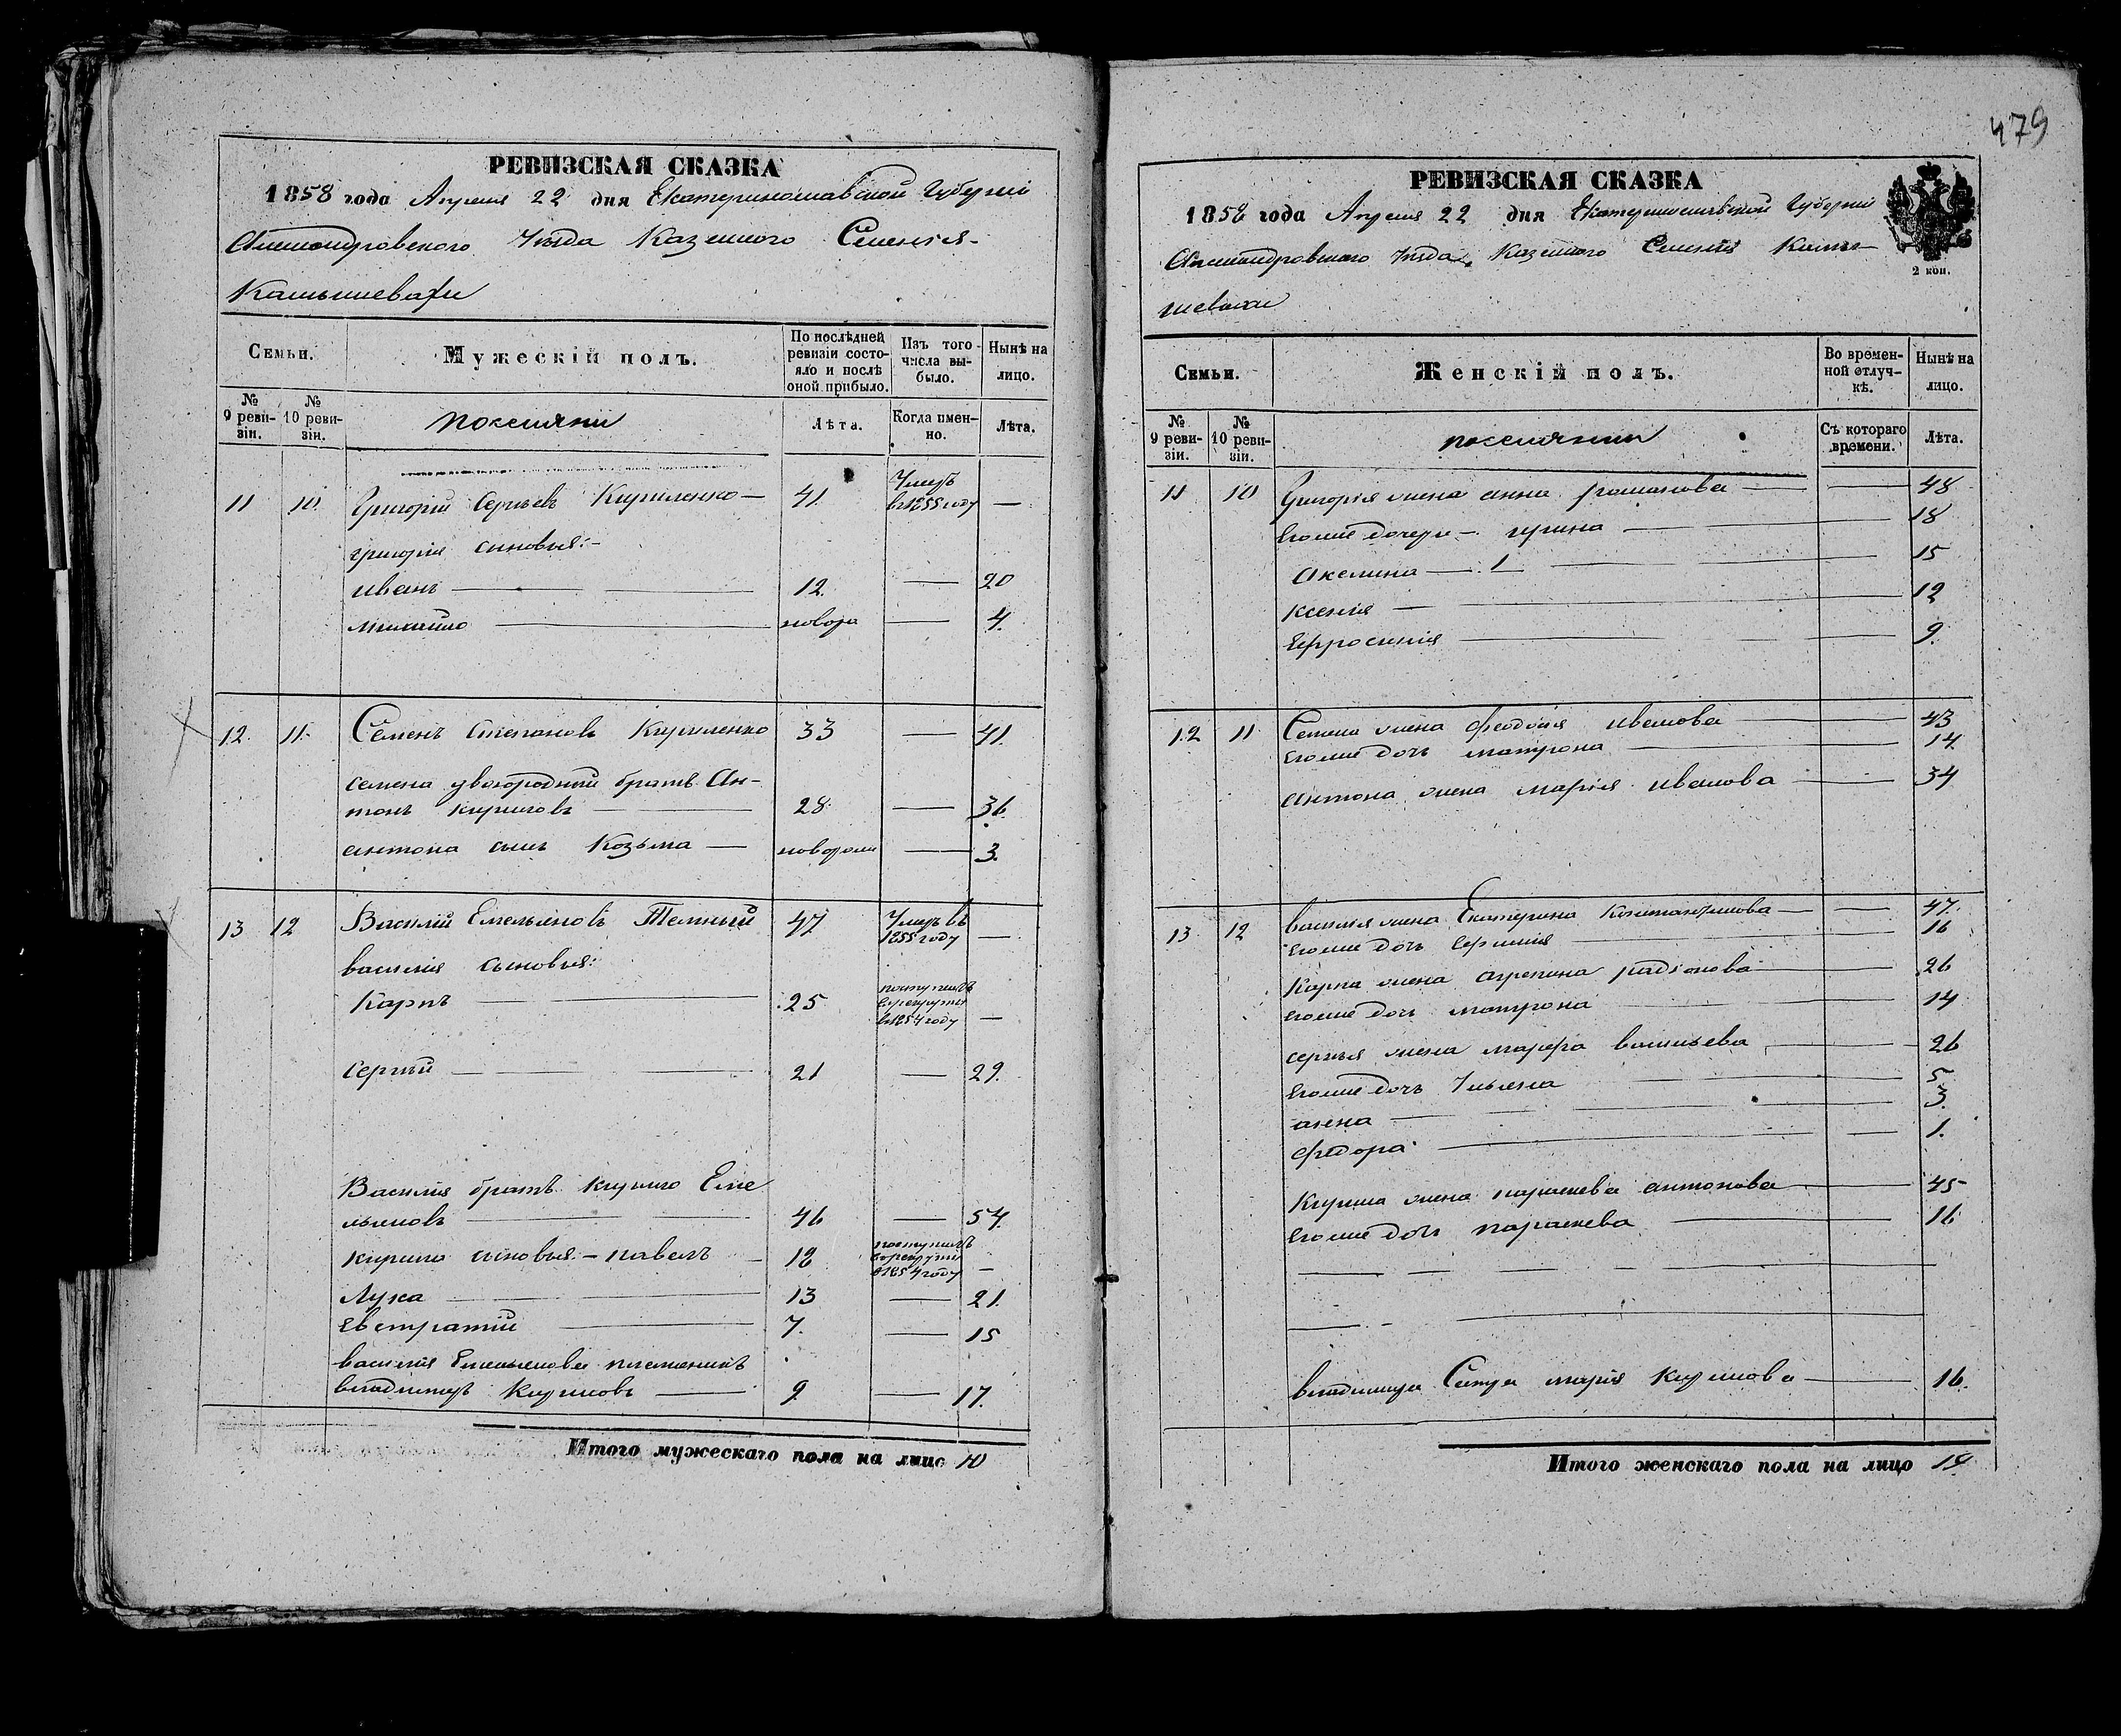 РЕВИЗСКАЯ СКАЗКА
1858 года Апреля 22 дня Екатеринославской Губерніи
Александровскаго Уѣзда Казеннаго Селенія
Камышевахи
Семьи.
Мужескій полъ.
По послѣдней ревизіи состояло и послѣ оной прибыло.
Изъ того числа выбыло.
Нынѣ на лицо.
№ 9 ревизіи.
№ 10 ревизіи.
поселяни
Лѣта.
Когда именно.
Лѣта.
11 10 Григорій Сергѣевъ Кириленко — 41. Умеръ в 1855 году —
григорія сыновья:-
иванъ 12. — 20
михайло новоро — 4.
12. 11. Семенъ Степановъ Кириленко 33 — 41.
семена двоюродный братъ Ан-
тонъ кириловъ 28. — 36.
антона сынъ Козьма — новорож — 3.
13 12 Василій Емельяновъ Темный 47 Умеръ въ 1855 году —
василія сыновья:
Карпъ 25 поступилъ в рекруты в 1854 году —
Сергѣй 21 — 29.
Василія братъ кирило Еме
льяновъ 46 — 54.
кирила сыновья:- павелъ 18 поступилъ в рекруты в 1854 году —
Лука 13 — 21.
Евстратій 7. — 15
василія Емельянова племенникъ
владимеръ Кириловъ 9 — 17.
Итого мужескаго пола на лицо 10
479
РЕВИЗСКАЯ СКАЗКА
1858 года Апреля 22 дня Екатеринославской Губерніи
Александровскаго Уѣзда Казеннаго Селенія Камы-
шевахи
2 коп.
Семьи.
Женскій полъ.
Во временной отлучкѣ.
Нынѣ на лицо.
№ 9 ревизіи.
№ 10 ревизіи.
поселянки
Съ котораго времени.
Лѣта.
11 10 Григорія жена анна романова — 48
Егоже дочери — ирина 18
Акелина 15
ксенія 12
Ефросинія 9.
12 11 Семена жена феодосія иванова 43
Егоже дочь матрона 14.
антона жена марія иванова 34
13 12 василія жена Екатерина Константинова 47.
Егоже дочь 16
Карпа жена агрепина радіонова 26
Егоже дочь матрона 14
сергѣя жена марфа васильева 26
Егоже дочь Ульяна 5
анна 3.
федора 1.
Кирила жена параскева антонова 45
Егоже дочь параскева 16
владимира Сестра марія Кирилова 16.
Итого женскаго пола на лицо 19.